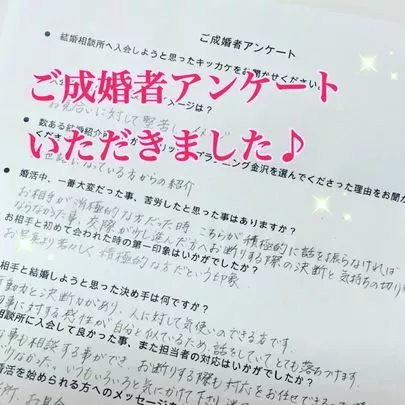 ご成婚者アンケート
● 結婚相談所へ入会しようと思ったキッカケをお聞かせください。
ご成婚者アンケート
いただきました♪
ージは？
お見合いに対して堅苦しイメージ
● 数ある結婚相
ニング金沢を選んでくださった理由をお聞か
くださ
っている方からの紹介
● 婚活中、一番大変だった事、苦労したと思った事はありますか？
お相手が消極的な方だった時 こちらが積極的に話を振らなければ
ならなかった事、交際が少し進んだ方へお断りする際の決断と気持ちの切り
お相手と初めて会われた時の第一印象はいかがでしたか？
お写真より若々しく積極的な方だという印象
相手と結婚しようと思った決め手は何ですか？
動力と決断力があり、人に対して気使いのできる方です。
事に対する感性が自分と似ているため、話をしていてとても落ちつけます。
相談所に入会して良かった事、また担当者の対応はいかがでしたか？
な事も相談する事ができ、お断りする際も対応をお任せできる
少なかった。いつもいろいろと気にかけて下さり
活を始められる方へのメッセージを